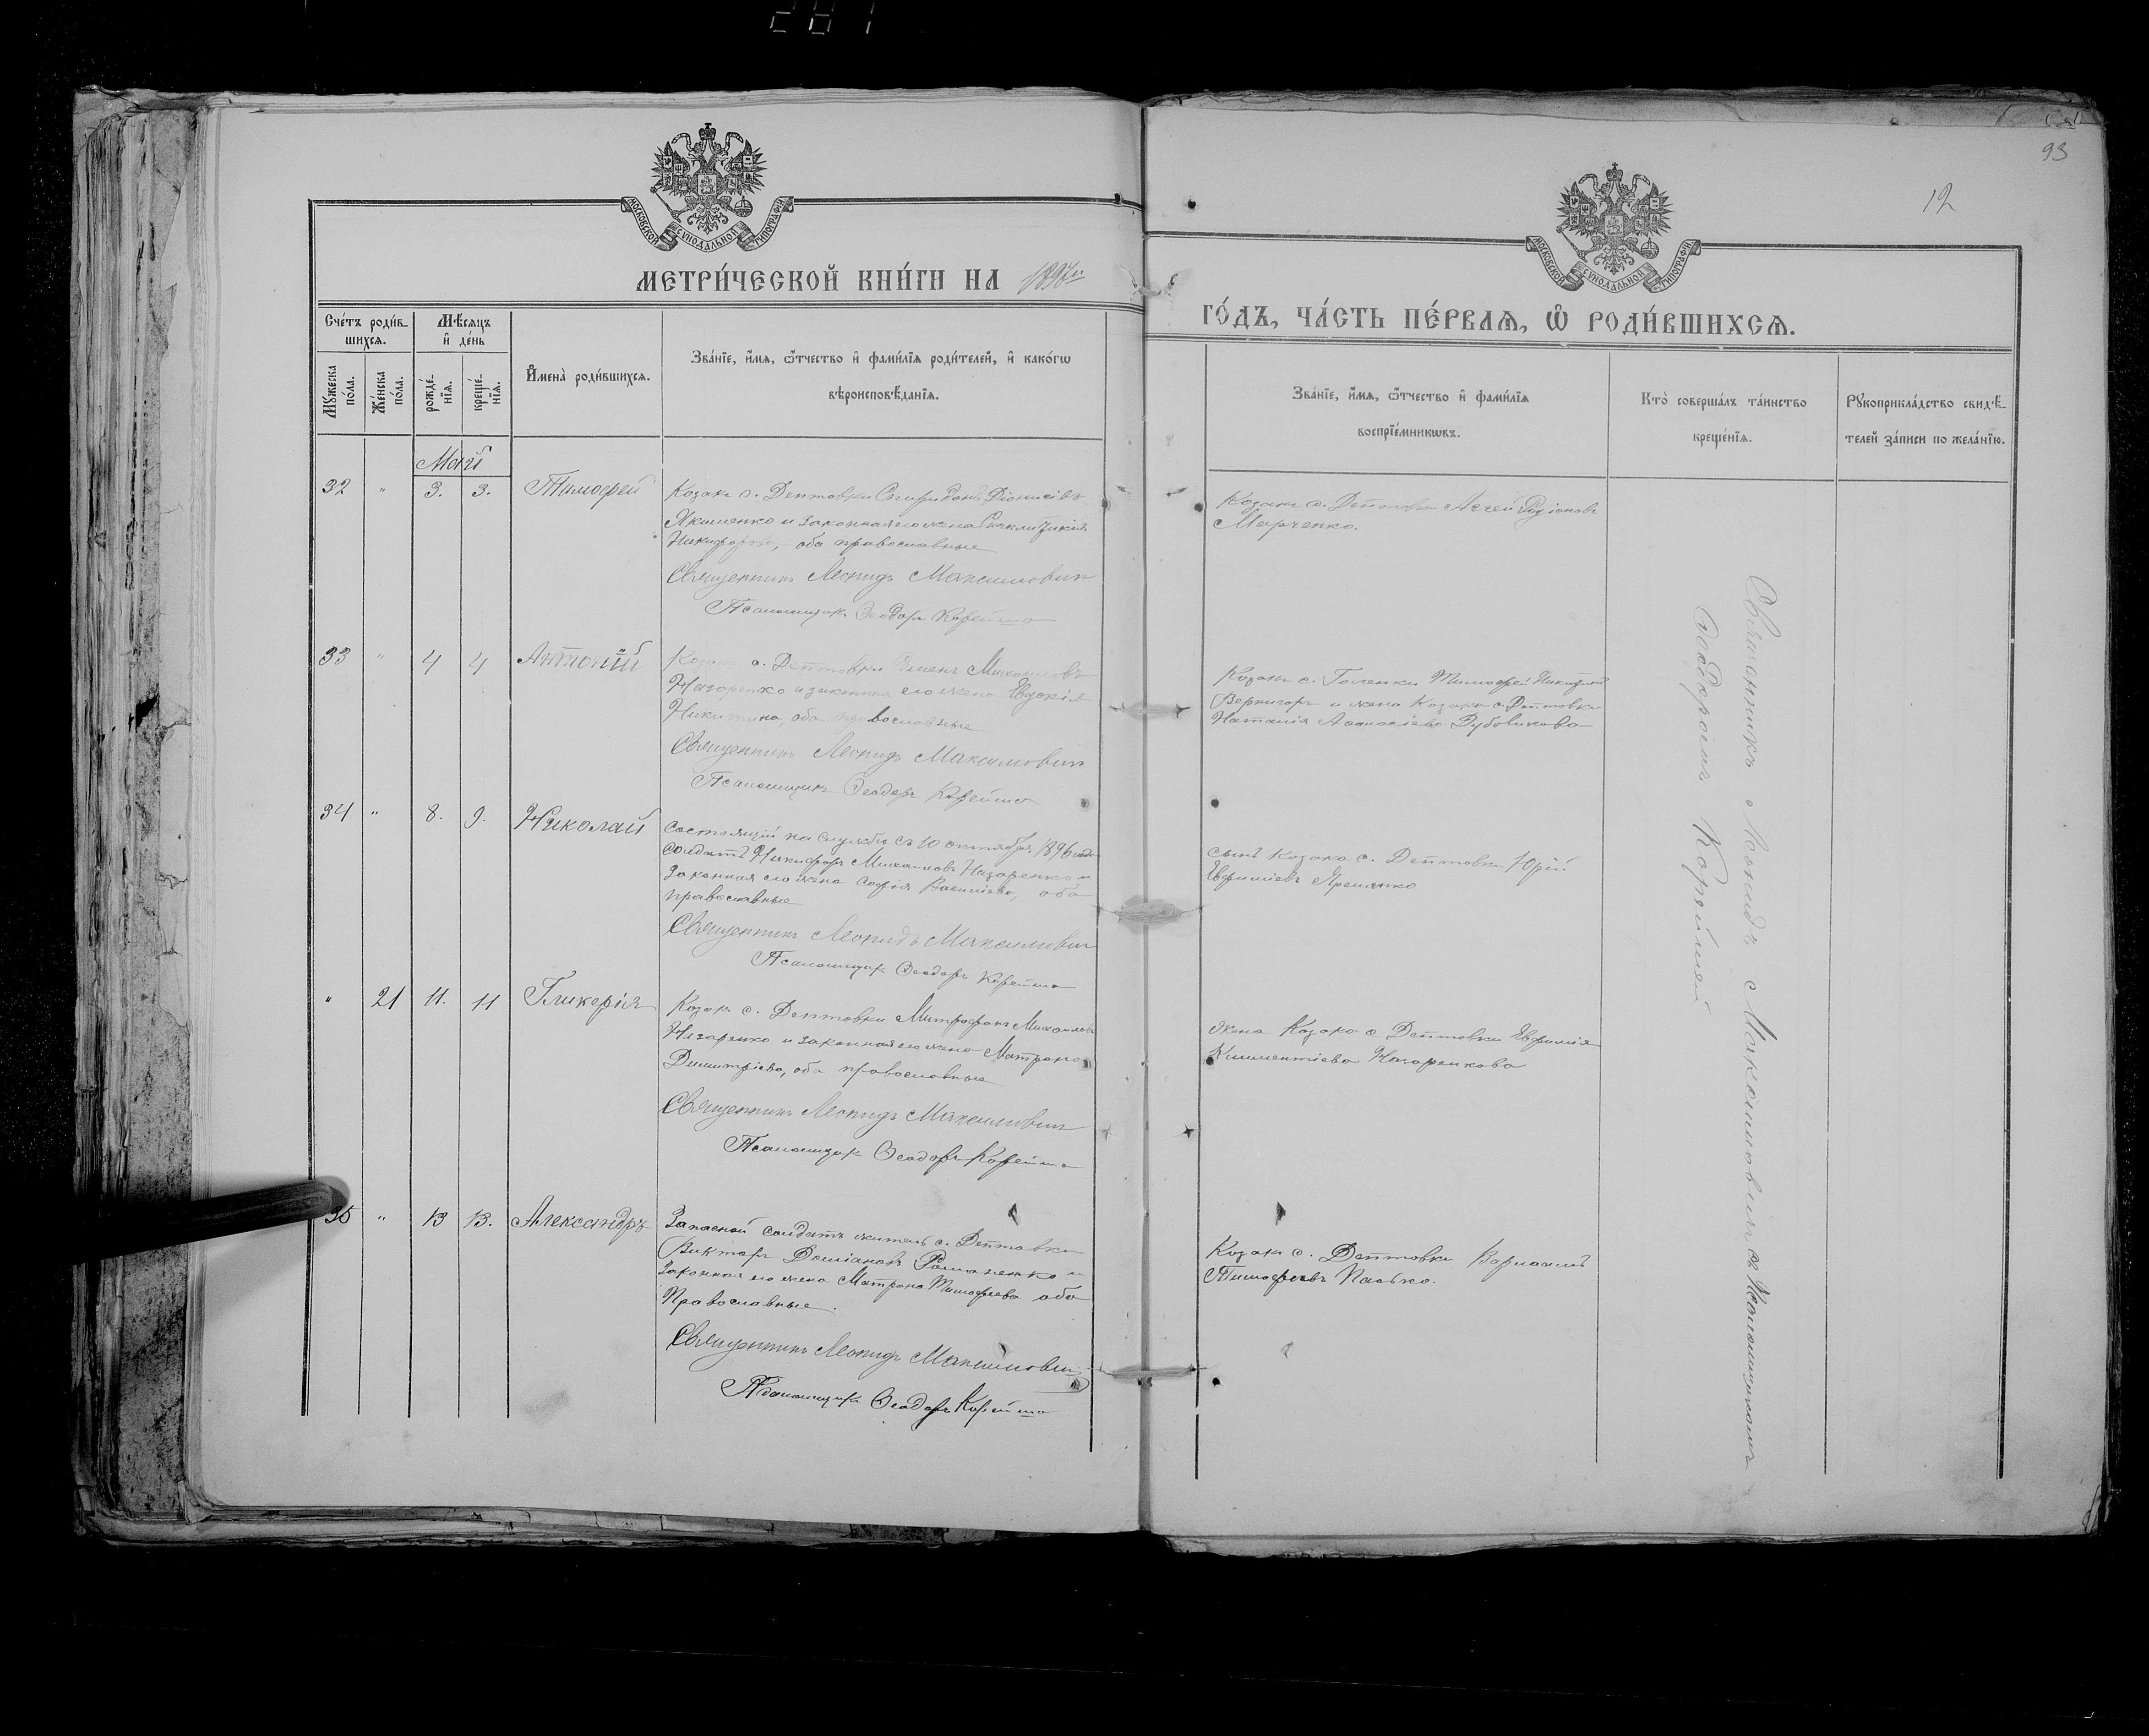 281
93
12
МОСКОВСКОЙ СѴНОДАЛЬНОЙ ТИПОГРАФІИ
МОСКОВСКОЙ СѴНОДАЛЬНОЙ ТИПОГРАФІИ
МЕТРИ́ЧЕСКОЙ КНИ́ГИ НА 1897й
ГО́ДЪ, ЧА́СТЬ ПЕ́РВАѦ, Ѡ҆ РОДИ́ВШИХСѦ.
Сче́тъ роди́в-
шихсѧ.
Мѣ́сѧцъ
и҆ де́нь
Мꙋ́жеска
по́ла.
Же́нска
по́ла.
рожде́-
нїѧ.
креще́-
нїѧ.
И҆мена̀ роди́вшихсѧ.
Зва́нїе, и҆́мѧ, ѻ҆́тчество и҆ фами́лїѧ роди́телей, и҆ како́гѡ
вѣроисповѣ́данїѧ.
Зва́нїе, и҆́мѧ, ѻ҆́тчество и҆ фами́лїѧ
воспрїе́мникѡвъ.
Кто̀ соверша́лъ та́инство
креще́нїѧ.
Рꙋкоприкла́дство свидѣ́-
телей за́писи по жела́нїю.
Май
32 " 3. 3. Тимофей
Козакъ с. Дептовки Спиридонъ Діонисіевъ
Якименко и законная его жена
Никифорова, оба православные
Священникъ Леонидъ Максимович
Псаломщик Ѳеодоръ Корейша
Козакъ с. Дептовки Родіоновъ
Марченко.
33 " 4 4 Антоній
Козакъ с. Дептовки Семенъ Михаиловъ
Назаренко и законная его жена Евдокія
Никитина, оба православные
Священникъ Леонидъ Максимович
Псаломщикъ Ѳеодоръ Корейша
Козакъ с. Голенки Тимофей
Вернигора и жена Козака с. Дептовки
Наталія Аѳанасіева Дубовикова
34 " 8. 9. Николай
Состоящій на службѣ съ 10 октября 1896 года
солдатъ Никифоръ Михаиловъ Назаренко и
законная его жена Софія Василіева, оба
православные
Священникъ Леонидъ Максимович
Псаломщик Ѳеодоръ Корейша
сынъ Козака с. Дептовки Юрій
Евфиміевъ Яременко
" 21 11. 11 Гликерія
Козакъ с. Дептовки Митрофанъ Михаиловъ
Назаренко и законная его жена Матрона
Димитріева, оба православные
Священникъ Леонидъ Максимович
Псаломщик Ѳеодоръ Корейша
Жена Козака с Дептовки Евфимія
Климентіева Назаренкова
35 " 13 13. Александръ
Запасной солдатъ житель с. Дептовки
Викторъ Даміановъ Романенко и
законная его жена Матрона Тимофеева оба
Православные.
Священникъ Леонидъ Максимович
Псаломщик Ѳеодоръ Корейша
Козакъ с. Дептовки Варлаамъ
Тимофеевъ Пасько.
Священникъ Леонидъ Максимовичъ съ Псаломщикомъ
Ѳеодоромъ Корейшей